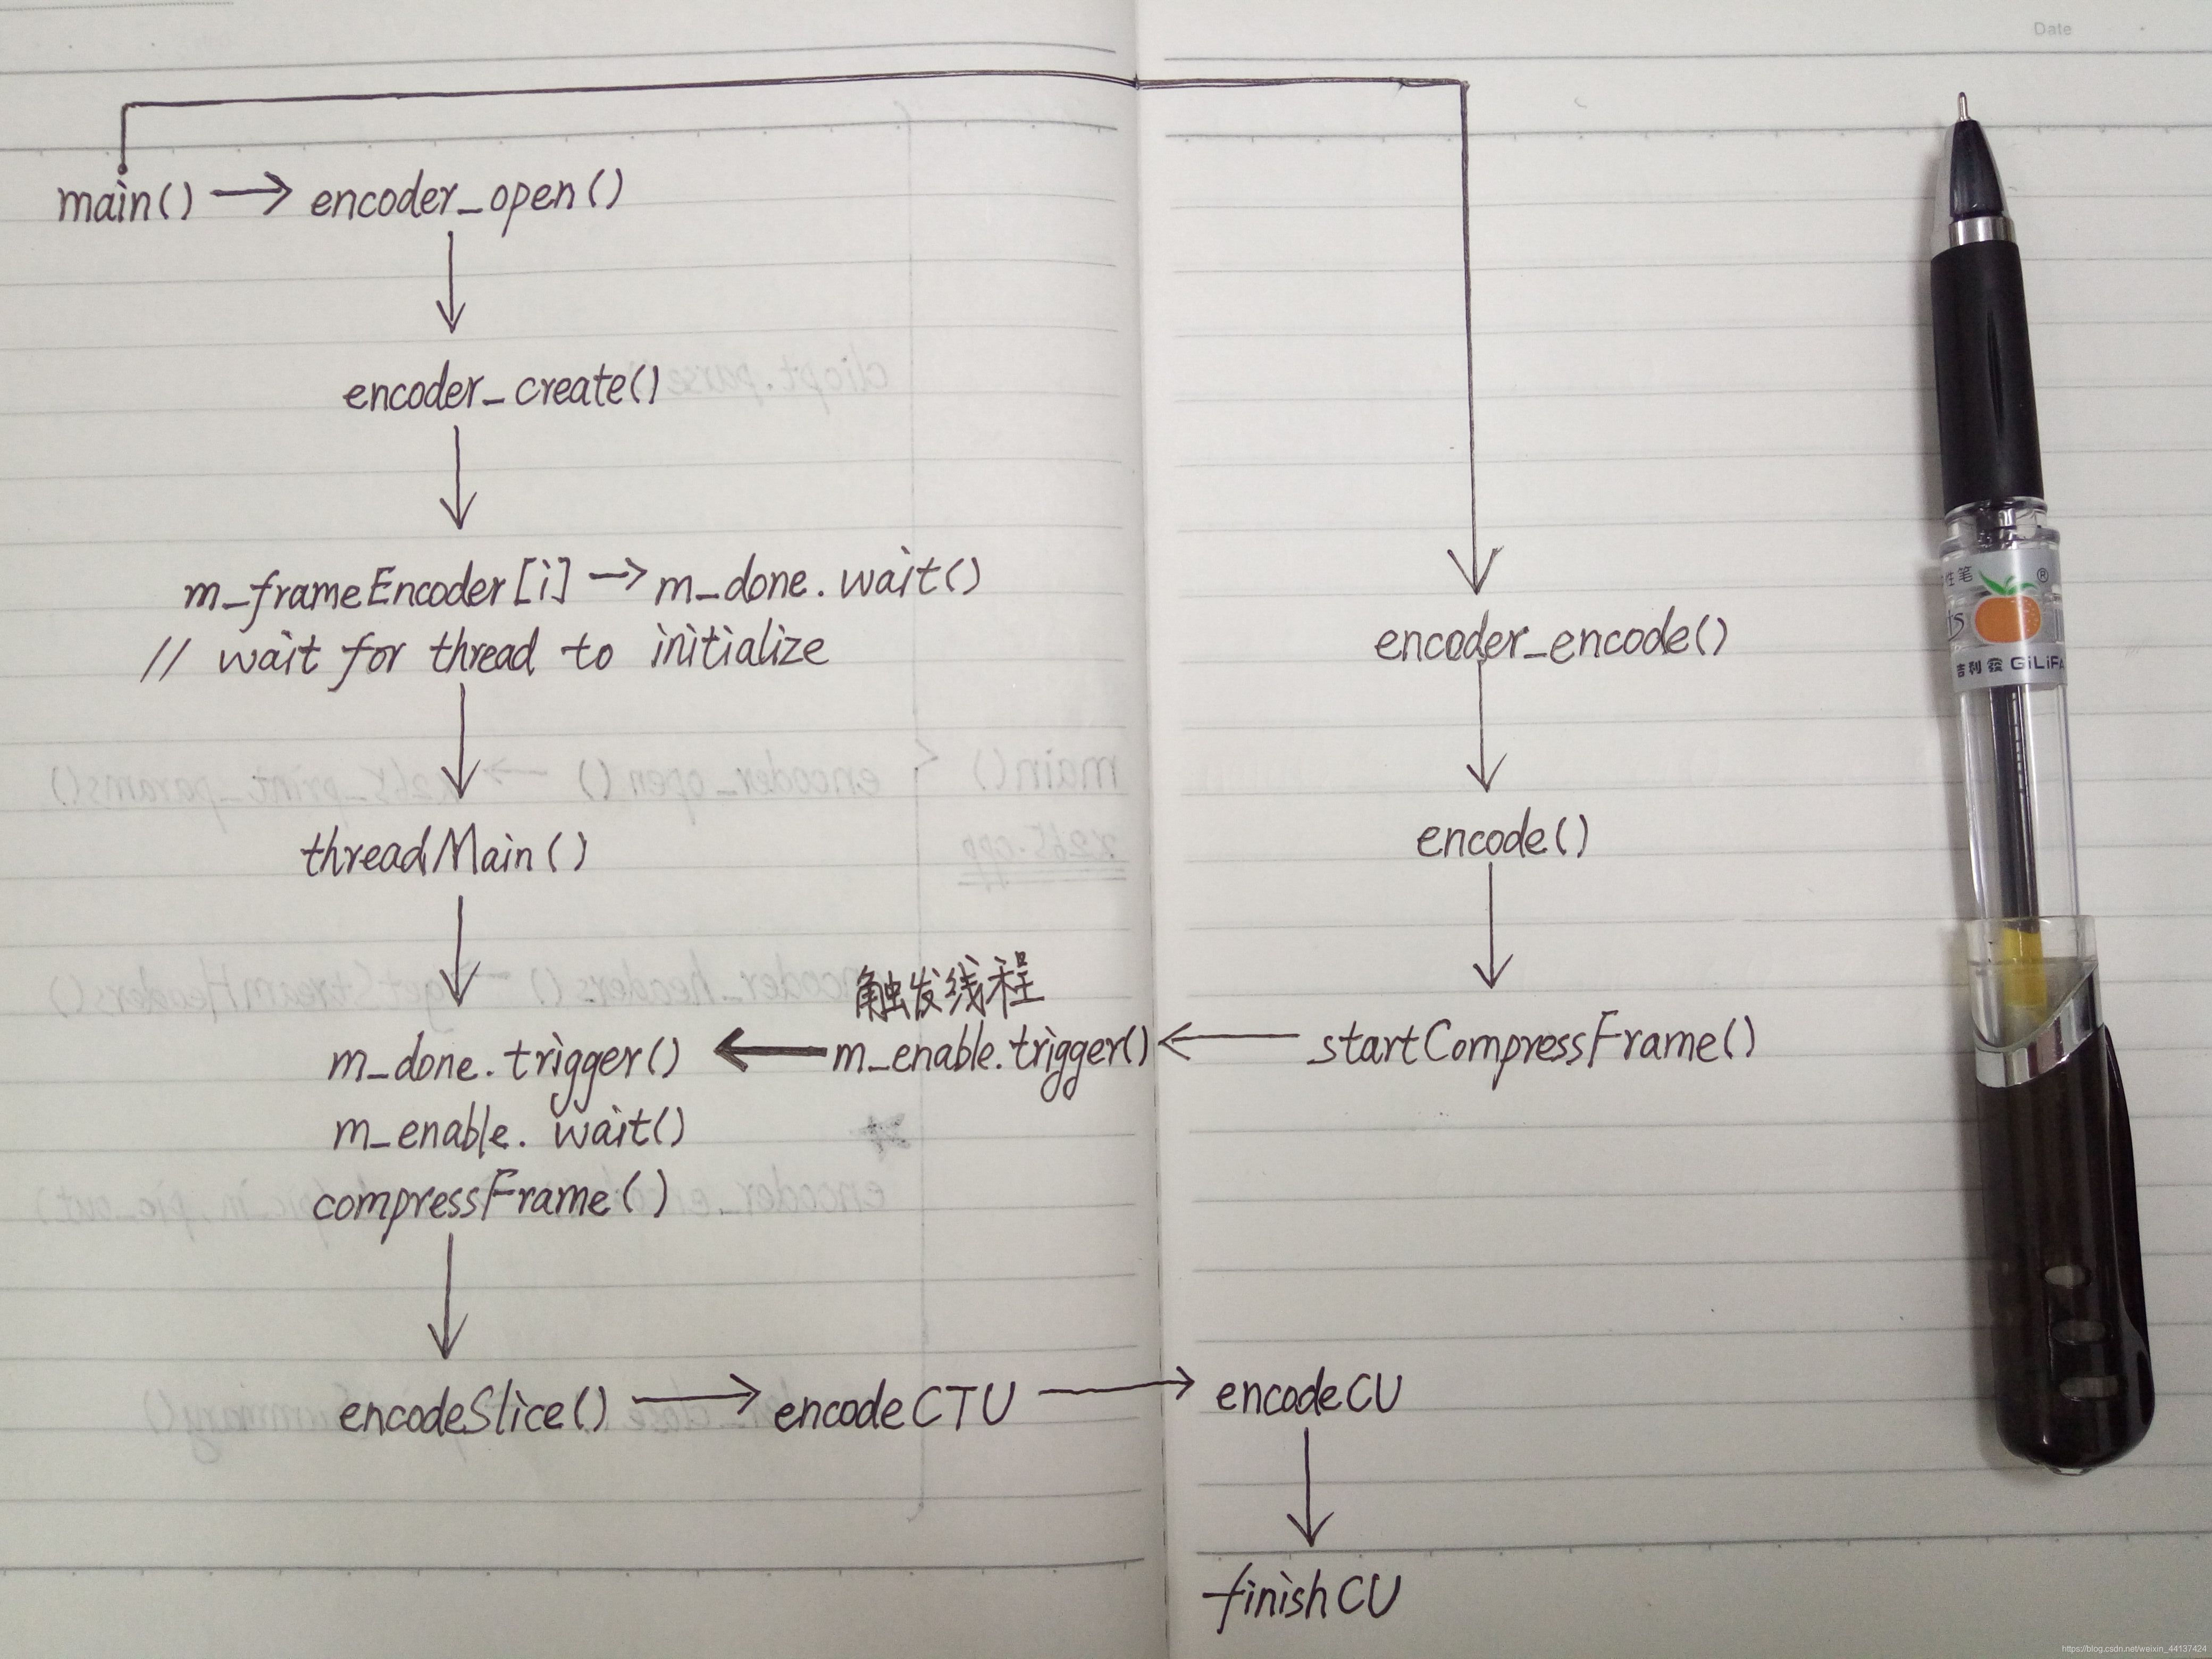 Date
main() → encoder_open()
encoder_create()
m_frameEncoder[i] → m_done.wait()
// wait for thread to initialize
threadMain()
触发线程
m_done.trigger() ← m_enable.trigger() ← startCompressFrame()
m_enable.wait()
compressFrame()
encodeSlice() → encodeCTU → encodeCU
finishCU
encoder_encode()
encode()
性笔
®
吉利
GiLiFA
https://blog.csdn.net/weixin_44137424